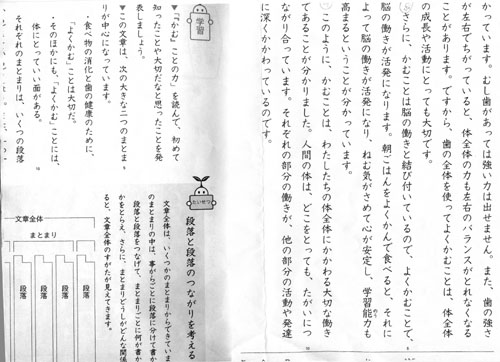 かっています。むし歯があっては強い力は出せません。また、歯の強さ
が左右でちがっていると、体全体の力も左右のバランスがとれなくなる
ことがあります。ですから、歯の全体を使ってよくかむことは、体全体
の成長や活動にとっても大切です。
さらに、かむことは脳の働きと結び付いているので、よくかむことで、
脳の働きが活発になります。朝ごはんをよくかんで食べると、それに
よって脳の働きが活発になり、ねむ気がさめて心が安定し、学習能力も
高まるということが分かっています。
このように、かむことは、わたしたちの体全体にかかわる大切な働き
であることが分かりました。人間の体は、どこをとっても、たがいにつ
ながり合っています。それぞれの部分の働きが、他の部分の活動や発達
に深くかかわっているのです。
学習
▼「『かむ』ことの力」を読んで、初めて
知ったことや大切だなと思ったことを発
表しましょう。
▼この文章は、次の大きな二つのまとま
りが中心になっています。
・食べ物の消化と歯の健康のために、
「よくかむ」ことは大切だ。
・そのほかにも、「よくかむ」ことには、
体にとっていい面がある。
それぞれのまとまりは、いくつの段落
たいせつ
段落と段落のつながりを考える
文章全体は、いくつかのまとまりからできていま
のまとまりの中は、事がらごとに段落に分けて書か
段落と段落をつなげて、まとまりごとに何が書か
かをとらえ、さらに、まとまりどうしがどんな関係
ると、文章全体のすがたが見えてきます。
文章全体
まとまり
段落
段落
段落
段落